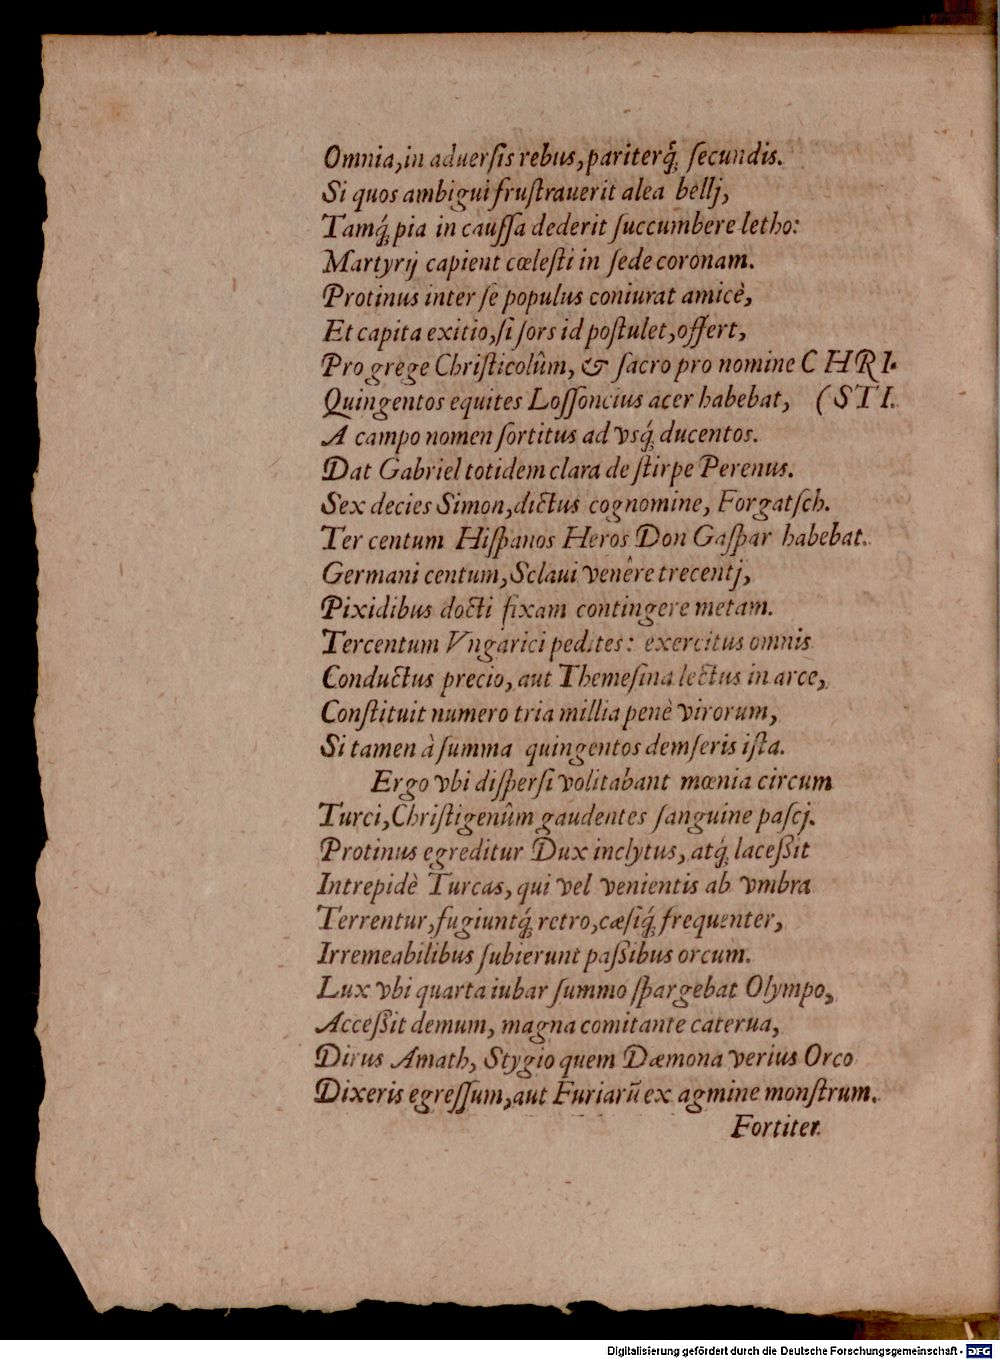 Omnia,in aduerſis rebus,pariterq́; ſecundis.
Si quos ambigui fruſtrauerit alea bellj,
Tamq́; pia in cauſſa dederit ſuccumbere letho:
Martyrij capient cœleſti in ſede coronam.
Protinus inter ſe populus coniurat amicè,
Et capita exitio,ſi ſors id poſtulet,offert,
Pro grege Chriſticolûm, & ſacro pro nomine CHRI-
Quingentos equites Loſſoncius acer habebat, (STI.
A campo nomen ſortitus ad vsq́; ducentos.
Dat Gabriel totidem clara de ſtirpe Perenus.
Sex decies Simon,dictus cognomine, Forgatſch.
Ter centum Hiſpanos Heros Don Gaſpar habebat.
Germani centum,Sclaui venêre trecentj,
Pixidibus docti fixam contingere metam.
Tercentum Vngarici pedites: exercitus omnis
Conductus precio, aut Themeſina lectus in arce,
Conſtituit numero tria millia penè virorum,
Si tamen à ſumma quingentos demſeris iſta.
Ergo vbi diſperſi volitabant mœnia circum
Turci,Chriſtigenûm gaudentes ſanguine paſcj.
Protinus egreditur Dux inclytus, atq́; laceßit
Intrepidè Turcas, qui vel venientis ab vmbra
Terrentur,fugiuntq́; retro,cæſiq́; frequenter,
Irremeabilibus ſubierunt paßibus orcum.
Lux vbi quarta iubar ſummo ſpargebat Olympo,
Acceßit demum, magna comitante caterua,
Dirus Amath, Stygio quem Dæmona verius Orco
Dixeris egreſſum,aut Furiarū ex agmine monſtrum.
Fortiter
Digitalisierung gefördert durch die Deutsche Forschungsgemeinschaft - DFG